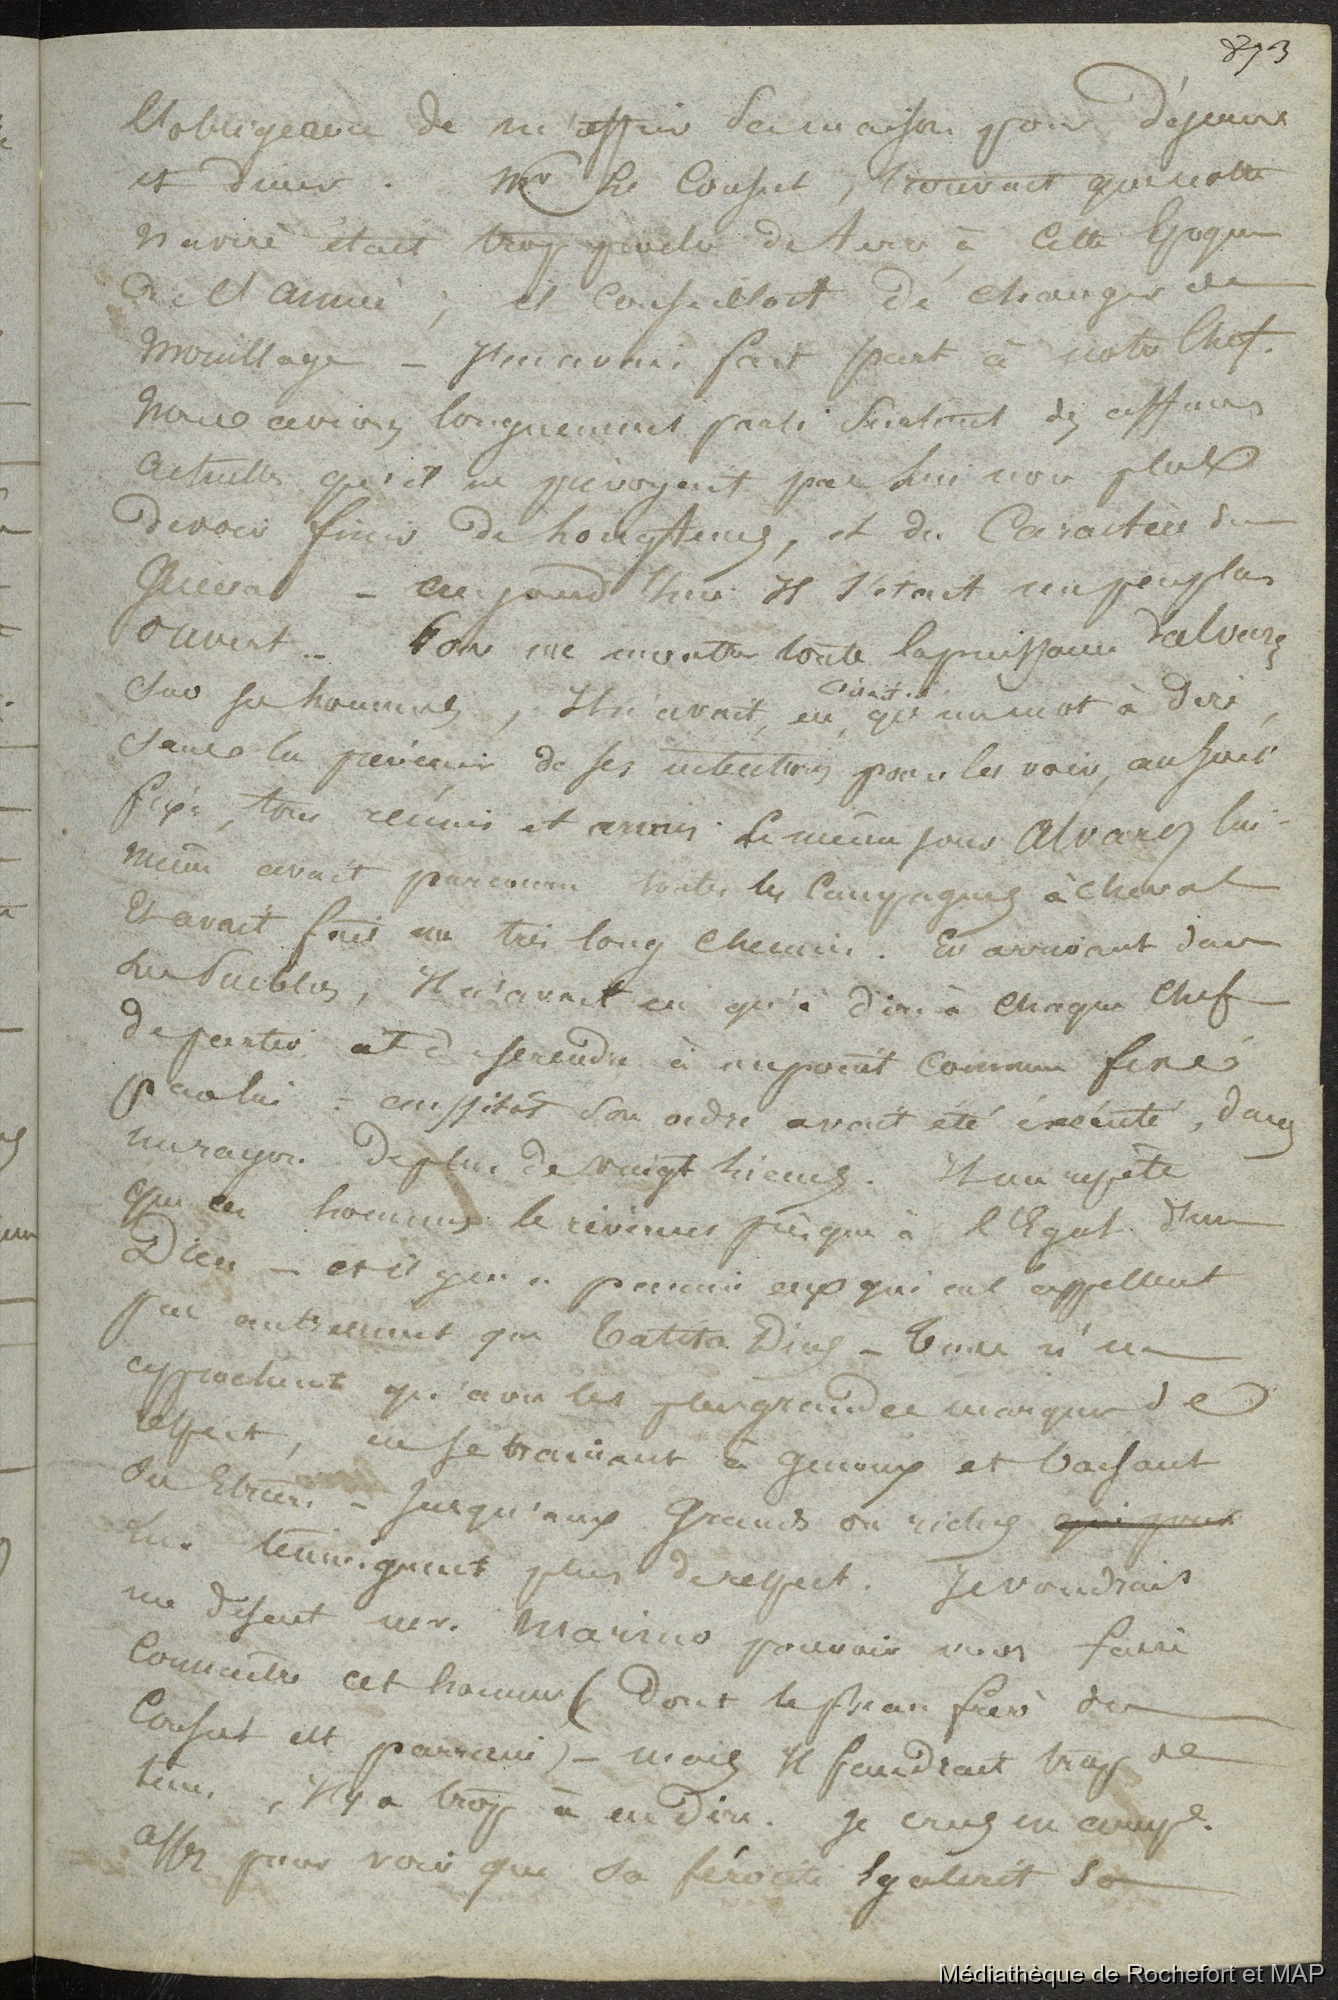 873
l'obligeance de m'offrir sa maison pour déjeuner
et diner. Mr Le Consul, trouvait que notre
navire était trop proche de terre à Cette Epoque
de l'année, et Conseillait de changer de
Mouillage - J'en avais fait part à notre Chef.
Nous avions longuement parlé surtout des affaires
actuelles qu'il ne prévoyait pas lui non plus
devoir finir de longtems, et du Caractère du
Général - aujourd'hui Il s'était un peu plus
ouvert - Pour me montrer toute la puissance d'alvarez
sur ses hommes, Il n'avait, eu, qu'un mot à dire,
sans les prévenir de ses intentions pour les voir, au jour
fixé, tous réunis et armés. Le même jour Alvarez lui-
même avait parcouru toutes les Campagnes à cheval
Et avait fait un très long chemin. En arrivant dans
les Pueblos, Il n'avait eu qu'à dire à chaque Chef
de partir et de se rendre à un point commun fixé
par lui - aussitôt son ordre avait été éxécuté, dans
un rayon de plus de vingt lieues. Il me répète
que ces hommes le révèrent presque à l'Egal d'un
Dieu - et il y en a parmi eux qui ne l'appellent
pas autrement que Tatita Dios - Tous n'en
approchent qu'avec les plus grandes marques de
respect, en se trainant à genoux et baisant
ses Etriers - Jusqu'aux Grands ou riches qui pour
lui témoignent plus de respect. Je voudrais
me disent mr. Marino pouvoir vous faire
Connaître cet homme (dont le beau frère du
Consul est parrain) - mais Il faudrait trop de
tems, Il y a trop à en dire. Je crus en comp.
assez pour voir que sa férocité Egalerait sa
Médiathèque de Rochefort et MAP